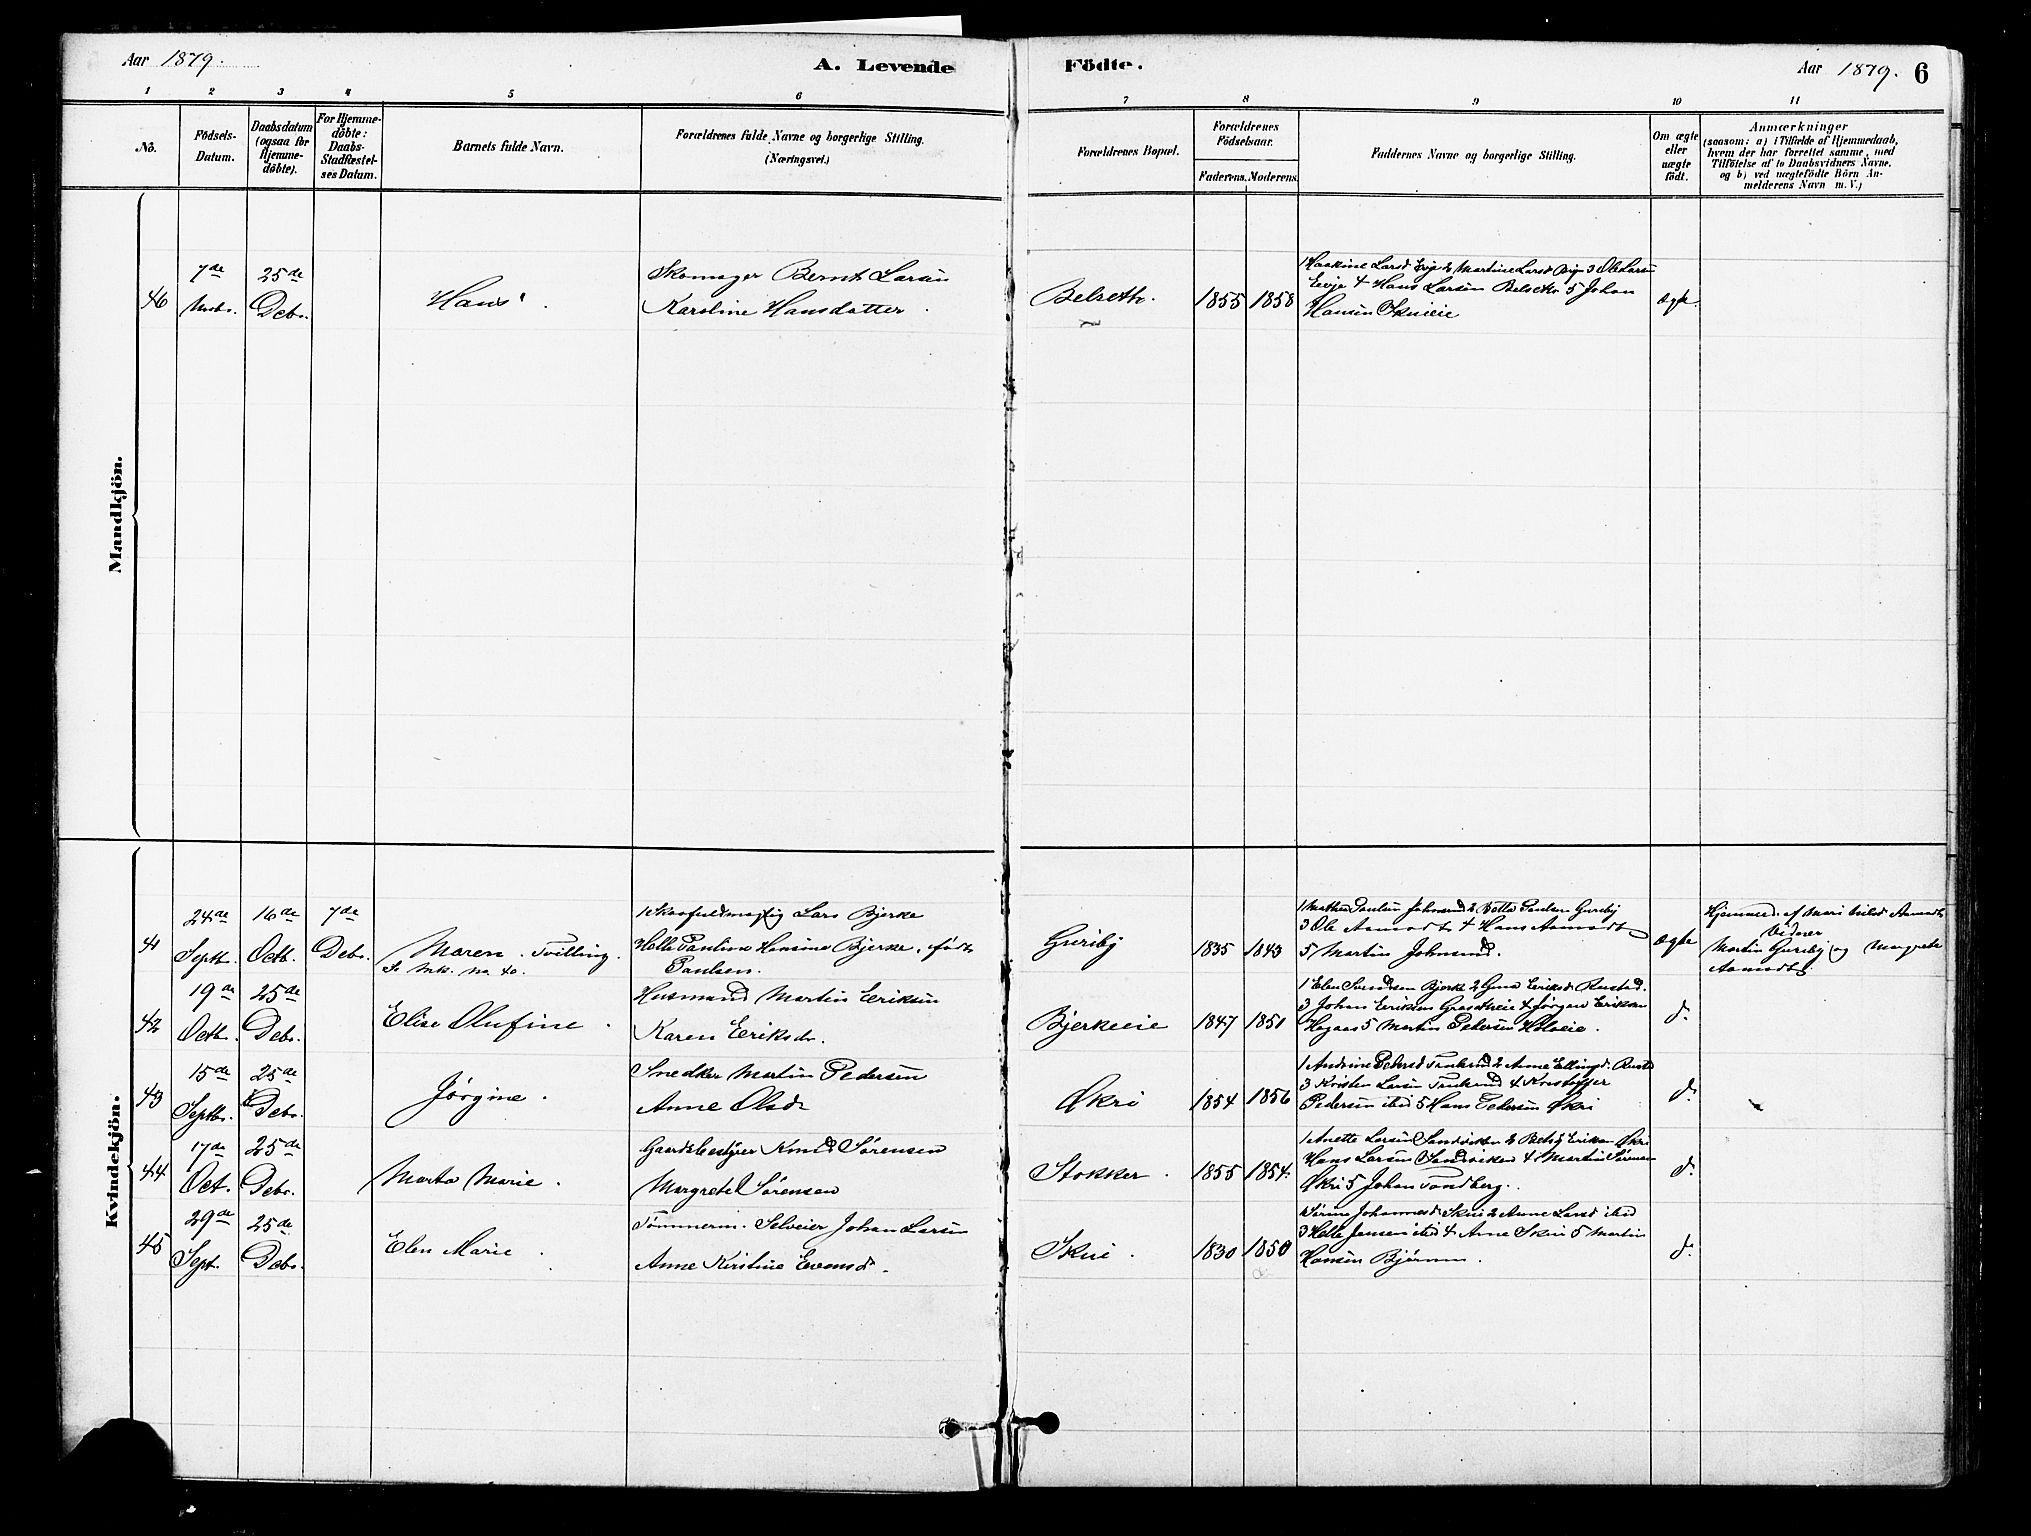 Aar 1879.
A. Levende
Födte.
Aar 1879. 6
1 2 3 4 5 6 7 8 9 10 11
No.
Födsels-
Datum.
Daabsdatum
(ogsaa for
Hjemme-
døbte).
For Hjemme-
døbte:
Daabs-
Stadfæstel-
ses Datum.
Barnets fulde Navn.
Forældrenes fulde Navne og borgerlige Stilling.
(Næringsvei.)
Forældrenes Bopæl.
Forældrenes
Födselsaar.
Faderens. Moderens.
Faddernes Navne og borgerlige Stilling.
Om ægte
eller
uægte
födt.
Anmærkninger
(saasom: a) i Tilfælde af Hjemmedaab,
hvem der har forrettet samme, med
Tilföielse af to Daabsvidners Navne,
og b) ved uægtefödte Börn An-
melderens Navn m. V.)
Mandkjön.
46
7de
25de
Decbr.
Hans
Skomager Bernt Larsen
Karoline Hansdatter
Belseth.
1855 1858
Martine Larsd 3 Ole Larsen
4 Hans Larsen Belseth 5 Johan
Hansen Skuieie
ægte.
Kvindekjön.
41
24de
Septbr.
16de
Octb.
7de
Decbr.
Maren. Tvilling.
Lars Bjerke
Helle Pauline Hansine Bjerke, født
Paulsen.
Guriby
1835 1843
3 Ole Aamodt 4 Hans Aamodt
5 Martin Johnsrud.
ægte
Hjemmed. af Mari Aamodt
Vidner
Martin Guriby og Margrete
Aamodt.
42
19de
Octbr.
25de
Decbr.
Elise Olufine
Husmand Martin Eriksen
Karen Eriksdr.
Bjerkeeie
1847 1851
1 Elen Svendsen Bjerke 2 Gina Eriksd. Rustad.
3 Johan Eriksen 4 Jørgen Eriksen
Hagaas 5 Martin Pedersen
d.
43
15de
Septbr.
25de
Decbr.
Jørgine.
Snedker Martin Pedersen
Anne Olsdr
Økri
1854 1856
1 Andrine Pedersd 2 Anne Ellingsd.
3 Kristen Larsen 4 Kristoffer
Pedersen ibid 5 Hans Pedersen Økri
d.
44
17de
Oct.
25de
Decbr.
Marta Marie.
Gaardsbestyrer Knud Sørensen
Margrete Sørensen
Stokker.
1855 1854.
1 Anette Larsen Sandviken 2 Betsy Eriksen Økri
Hans Larsen Sandviken 4 Martin Sørensen
Økri 5 Johan Sandberg.
d.
45
29de
Sept.
25de
Decbr.
Elen Marie
Tømmerm. Selveier Johan Larsen
Anne Kirstine Evensd.
Skui.
1830 1850
Johannesd Skui 2 Anne Larsd ibid
3 Helle Jensen ibid 4 Anne Skui 5 Martin
Hansen Bjørnum.
d.